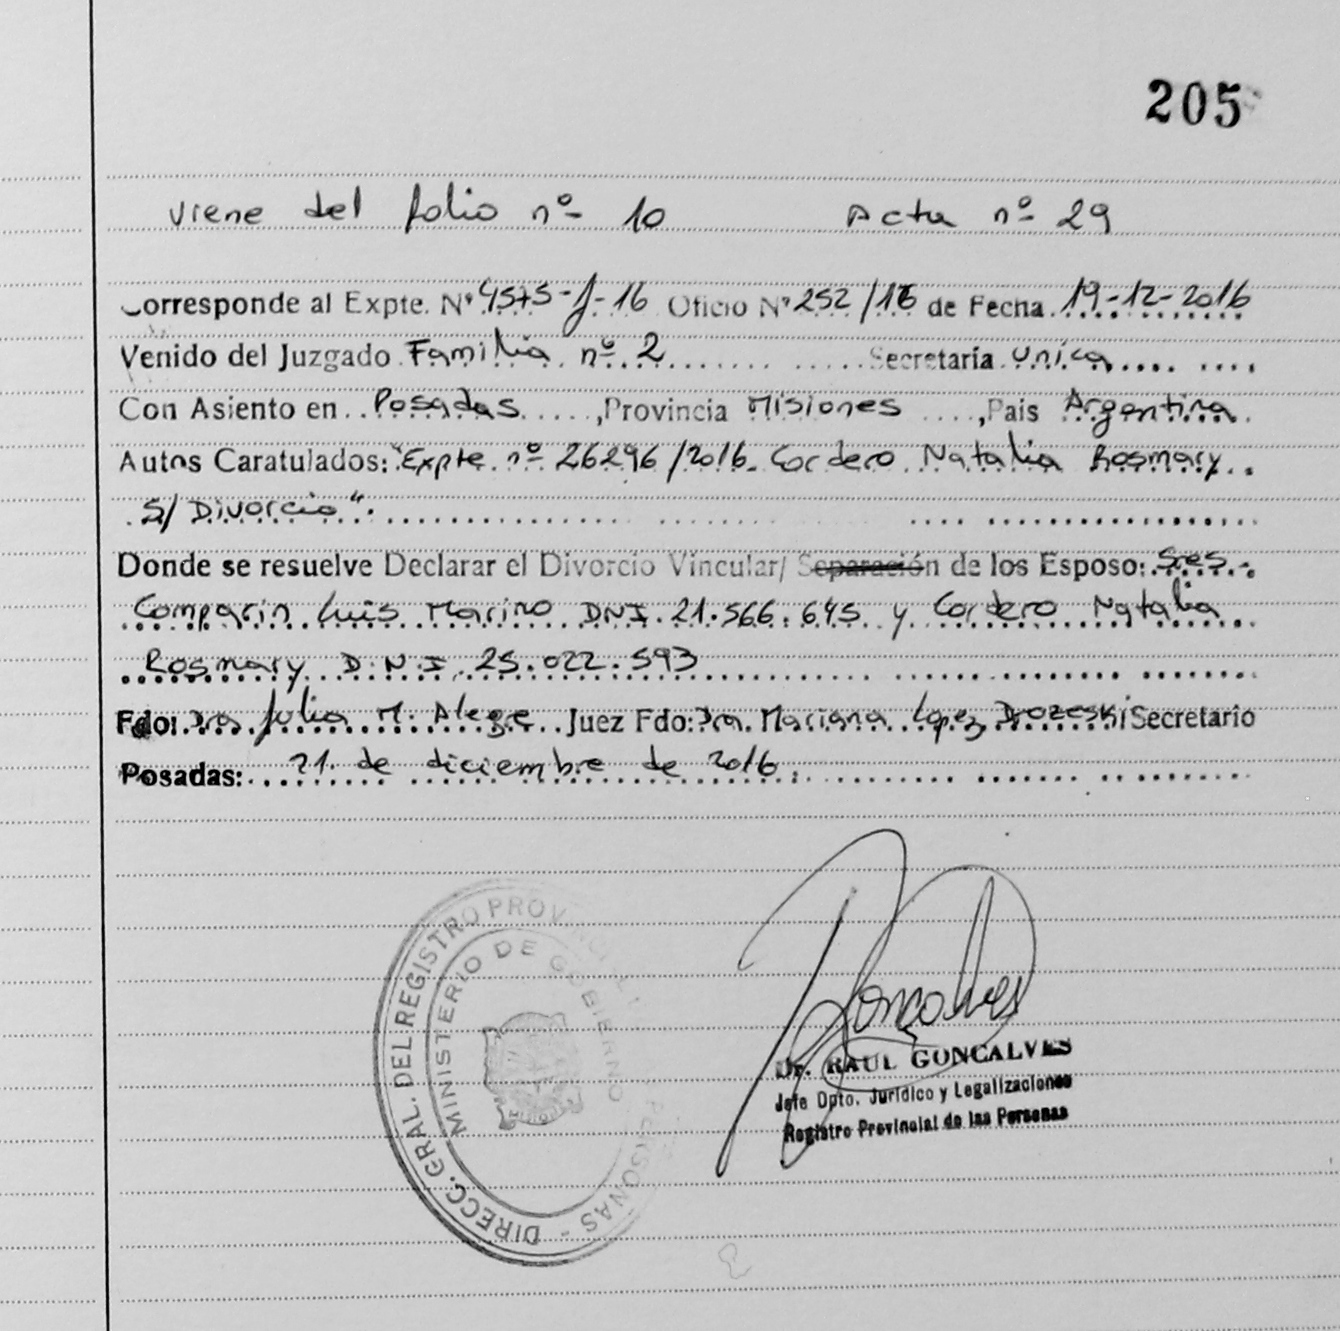 205
viene del folio nº 10 Acta nº 29
Corresponde al Expte. Nº 4575-J-16 Oficio Nº 252/16 de Fecha 19-12-2016
Venido del Juzgado Familia nº 2 Secretaría Unica
Con Asiento en Posadas, Provincia Misiones, Pais Argentina
Autos Caratulados: "Expte. nº 26296/2016. Cordero Natalia Rosmary
S/ Divorcio".
Donde se resuelve Declarar el Divorcio Vincular/ Separación de los Esposo: Sres.
Comparin Luis Marino DNI. 21.566.645 y Cordero Natalia
Rosmary D.N.I. 25.022.593
Fdo: Dra Julia M. Alegre Juez Fdo: Dra. Mariana Lopez Drozeski Secretario
Posadas: 21 de diciembre de 2016.
DIRECC. GRAL. DEL REGISTRO PROVINCIAL PERSONAS -
MINISTERIO DE GOBIERNO
Goncalves
Dr. RAUL GONCALVES
Jefe Dpto. Jurídico y Legalizaciones
Registro Provincial de las Personas